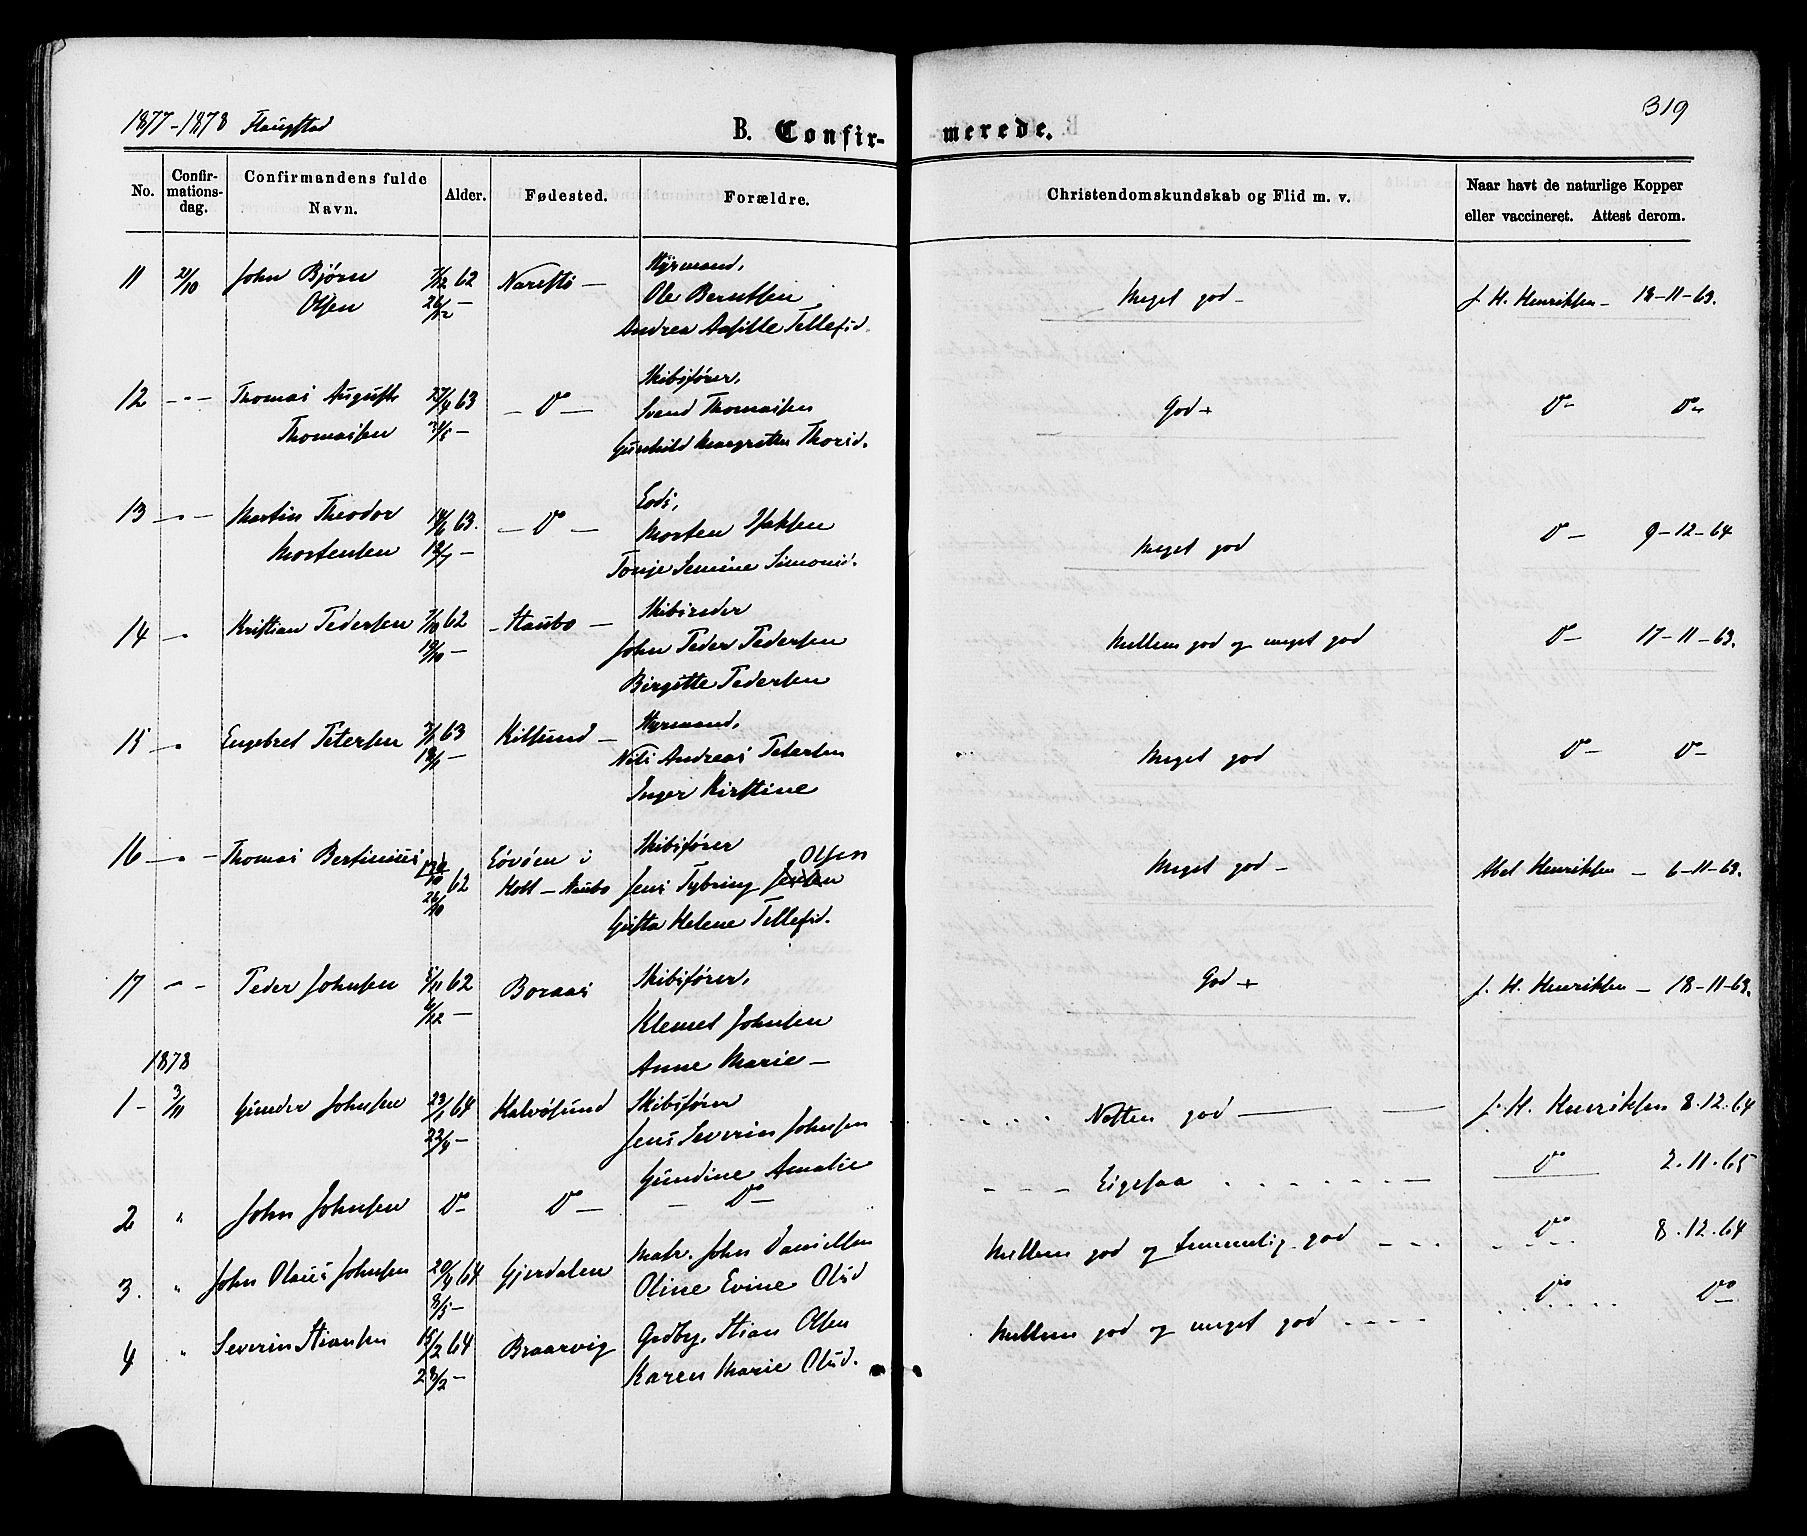 319
1877-1878 Flaugstad
B. Confir-merede.
No. Confir-mations-dag. Confirmandens fulde Navn. Alder. Fødested. Forældre. Christendomskundskab og Flid m. v. Naar havt de naturlige Kopper eller vaccineret. Attest derom.
11 21/10 John Bjørn 7/12 62 Narestø — Styrmand,
Olsen 26/12 — Ole Berntsen Meget god — J. H. Henriksen — 18-11-63.
Andrea Aasille Tellefsd.
12 -"- Thomas August 27/4 63 — Do — Skibsfører,
Thomassen 31/5 — Svend Thomassen God + Do — Do
Gunhild Margrethe Thorsd.
13 -"- Martin Theodor 14/6 63. — Do — Lods,
Mortensen 12/7 — Morten Isaksen Meget god Do — 9-12-64
Tonje Semine Simonsd.
14 " Kristian Pedersen 7/10 62 Staubø — Skibsreder
19/10 — John Peder Pedersen Mellem god og meget god Do — 17-11-63.
Birgitte Pedersen
15 " Engebret Petersen 7/1 63 Kilsund — Styrmand,
18/1 — Nils Andreas Petersen Meget god Do — Do
Inger Kirstine
16 -"- Thomas Bertinius 62 Løvøen i Skibsfører Olsen
26/10 Holt — Staubø Jens Tybring Jensen Meget god — Abel Henriksen — 6-11-63.
Gusta Helene Tellefsd.
17 -"- Peder Johnsen 5/11 62 Boraas Skibsfører, God + J. H. Henriksen — 18-11-63.
6/12 — Klemet Johnsen
Anne Marie —
1878
1 — 3/11 Gunder Johnsen 23/1 64 Kalvøsund Skibsfører Næsten god — J. H. Henriksen 8.12.64
22/4 — Jens Severin Johnsen
Gundine Amalie
2 " John Johnsen Do Do — Do — Ligesaa Do 2.11.65
3. " John Olaus Johnsen 20/4 64 Gjerdalen Matr. John Danielsen Mellem god og temmelig god Do 8.12.64
8/5 — Oline Evine Olsd
4 " Severin Stiansen 15/2 64 Braarvig Gadbg. Stian Olsen Mellem god og meget god Do Do
28/2 — Karen Marie Olsd.